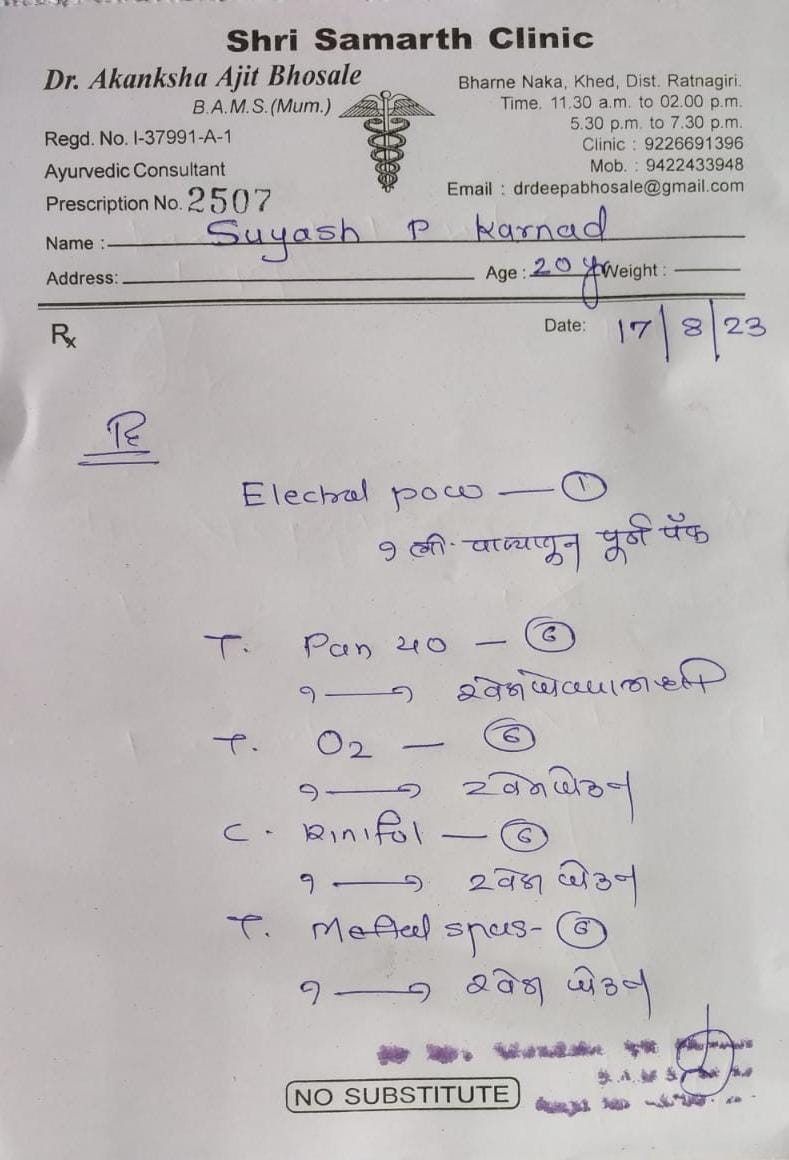 Shri Samarth Clinic
Dr. Akanksha Ajit Bhosale
B.A.M.S.(Mum.)
Regd. No. I-37991-A-1
Ayurvedic Consultant
Prescription No. 2507
Bharne Naka, Khed, Dist. Ratnagiri.
Time. 11.30 a.m. to 02.00 p.m.
5.30 p.m. to 7.30 p.m.
Clinic : 9226691396
Mob. : 9422433948
Email : drdeepabhosale@gmail.com
Name : Suyash P Karnad
Address: Age : 20 yr Weight :
Rx Date: 17/8/23
Electral pow — 1
१ ली. पाण्यातून पूर्ण पॅक
T. Pan 40 — 6
१ — १ २ वेळा जेवणाआधी
T. O2 — 6
१ — १ 2 वेळा जेऊन
C. Rinifol — 6
१ — १ 2 वेळा जेऊन
T. Meftal spas - 6
१ — १ २ वेळा जेऊन
NO SUBSTITUTE